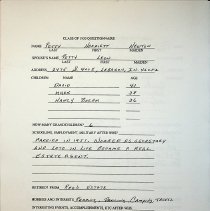 CLASS OF 1950 QUESTIONNAIRE
NAME PETTY HARRIETT NEWTON
LAST FIRST MAIDEN
SPOUSE'S NAME PETTY LEON
LAST FIRST MAIDEN
ADDRESS LEBANON, IN 46052
CHILDREN: NAME AGE
DAVID
MARK 38
NANCY 36
HOW MANY GRANDCHILDREN? 6
SCHOOLING, EMPLOYMENT, MILITARY AFTER WHS?
MARRIED IN 1951. WORKED AS SECRETARY
AND LATE IN LIFE BECAME A REAL
ESTATE AGENT.
RETIRED? FROM REAL ESTATE
HOBBIES AND INTERESTS READING, DANCING, CAMPING, TRAVEL
INTERESTING EVENTS, ACCOMPLISHMENTS, ETC AFTER WHS.